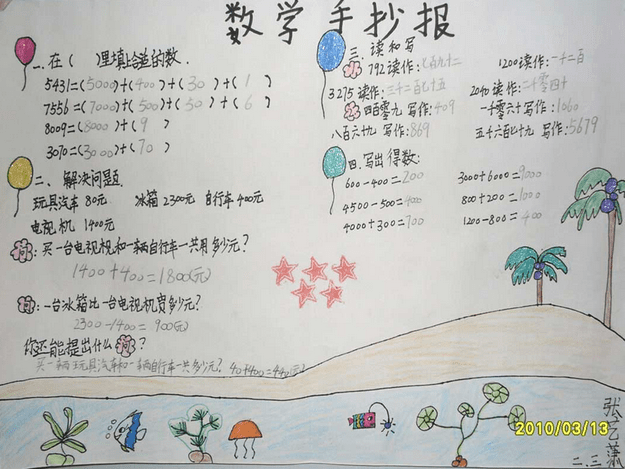 数学手抄报
一.在( )里填上合适的数.
5431=(5000)+(400)+(30)+(1)
7556=(7000)+(500)+(50)+(6)
8009=(8000)+(9)
3070=(3000)+(70)
二、解决问题.
玩具汽车 80元 冰箱2300元 自行车 400元
电视机 1400元
问:买一台电视机和一辆自行车一共用多少元?
1400+400=1800(元)
问:一台冰箱比一台电视机贵多少元?
2300-1400=900(元)
你还能提出什么问?
买一辆玩具汽车和一辆自行车一共多少元?
三、读和写
792读作:七百九十二 1200读作:一千二百
3275读作: 2040读作:二千零四十
四百零九 写作:409 一千零六十 写作:1060
八百六十九 写作:869 五千六百七十九 写作:5679
四.写出得数:
600-400=200 3000+6000=9000
4500-500=4000 800+200=1000
4000+300= 1200-800=400
张艺潇
二.三
2010/03/13